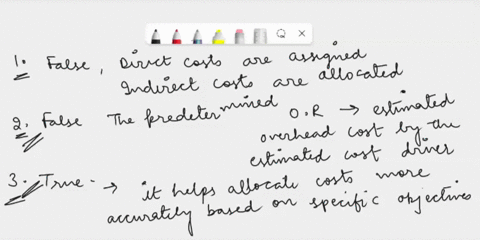 1. False, Direct costs are assigned
Indirect costs are allocated
2. False The predetermined O.R → estimated
overhead cost by the
estimated cost driver
3. True → it helps allocate costs more
accurately based on specific objectives